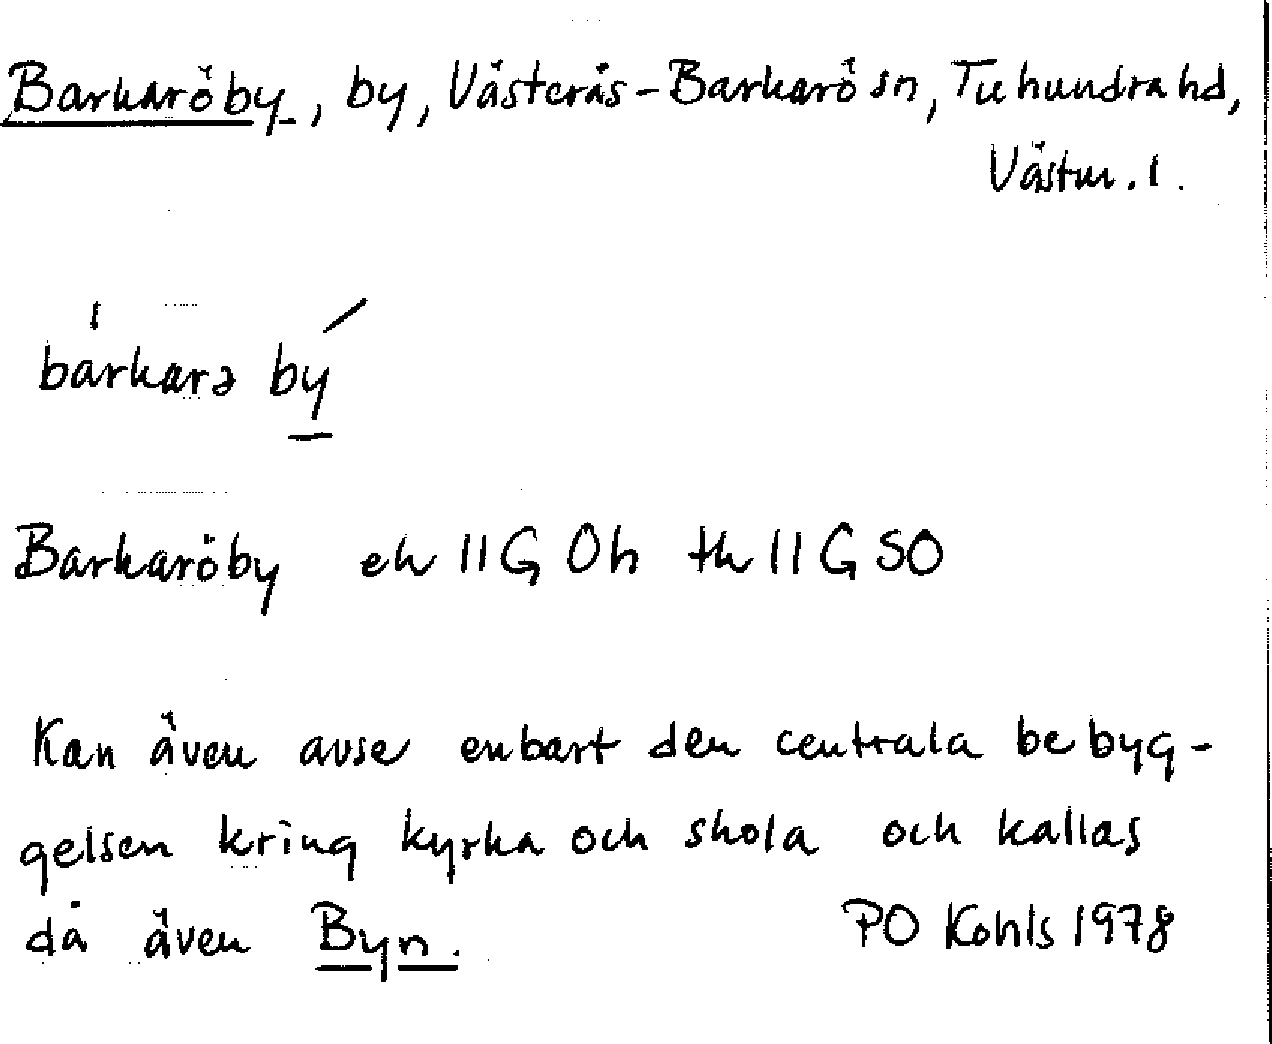 Barkaröby, by, Västerås-Barkarö sn, Tuhundra hd,
Västm. l.
barkarə by
Barkaröby ek 11G 0h tk 11G SO
Kan även avse enbart den centrala bebyg-
gelsen kring kyrka och skola och kallas
då även Byn.
PO Kohls 1978